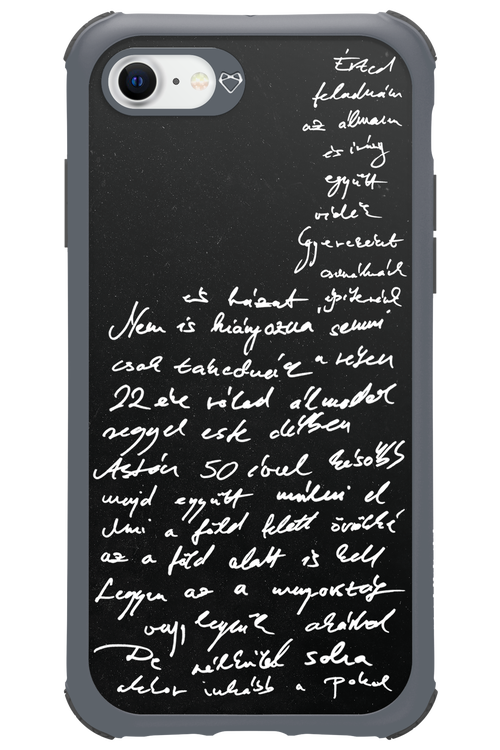 Érted
feladnám
az álmaim
és így
együtt
vidék
Gyerekeket
csinálnánk
és házat építenénk
Nem is hiányozna semmi
csak tavednék a réten
22 éve rólad álmodok
reggel este délben
Aztán 50 évvel később
majd együtt múlni el
Ami a föld felett örökké
az a föld alatt is kell
Legyen az a mennyország
vagy legyünk akárhol
De nélküled soha
akkor inkább a Pokol